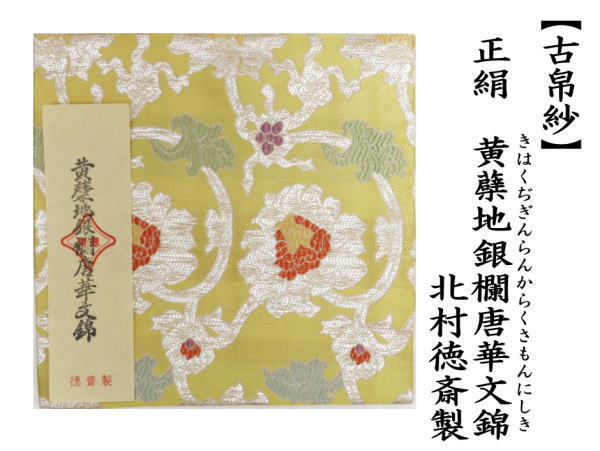 【古帛紗】
正絹 黄蘗地銀欄唐華文錦
きはくぢぎんらんからくさもんにしき
北村徳斎製
黄蘗地銀欄唐華文錦
徳齋製